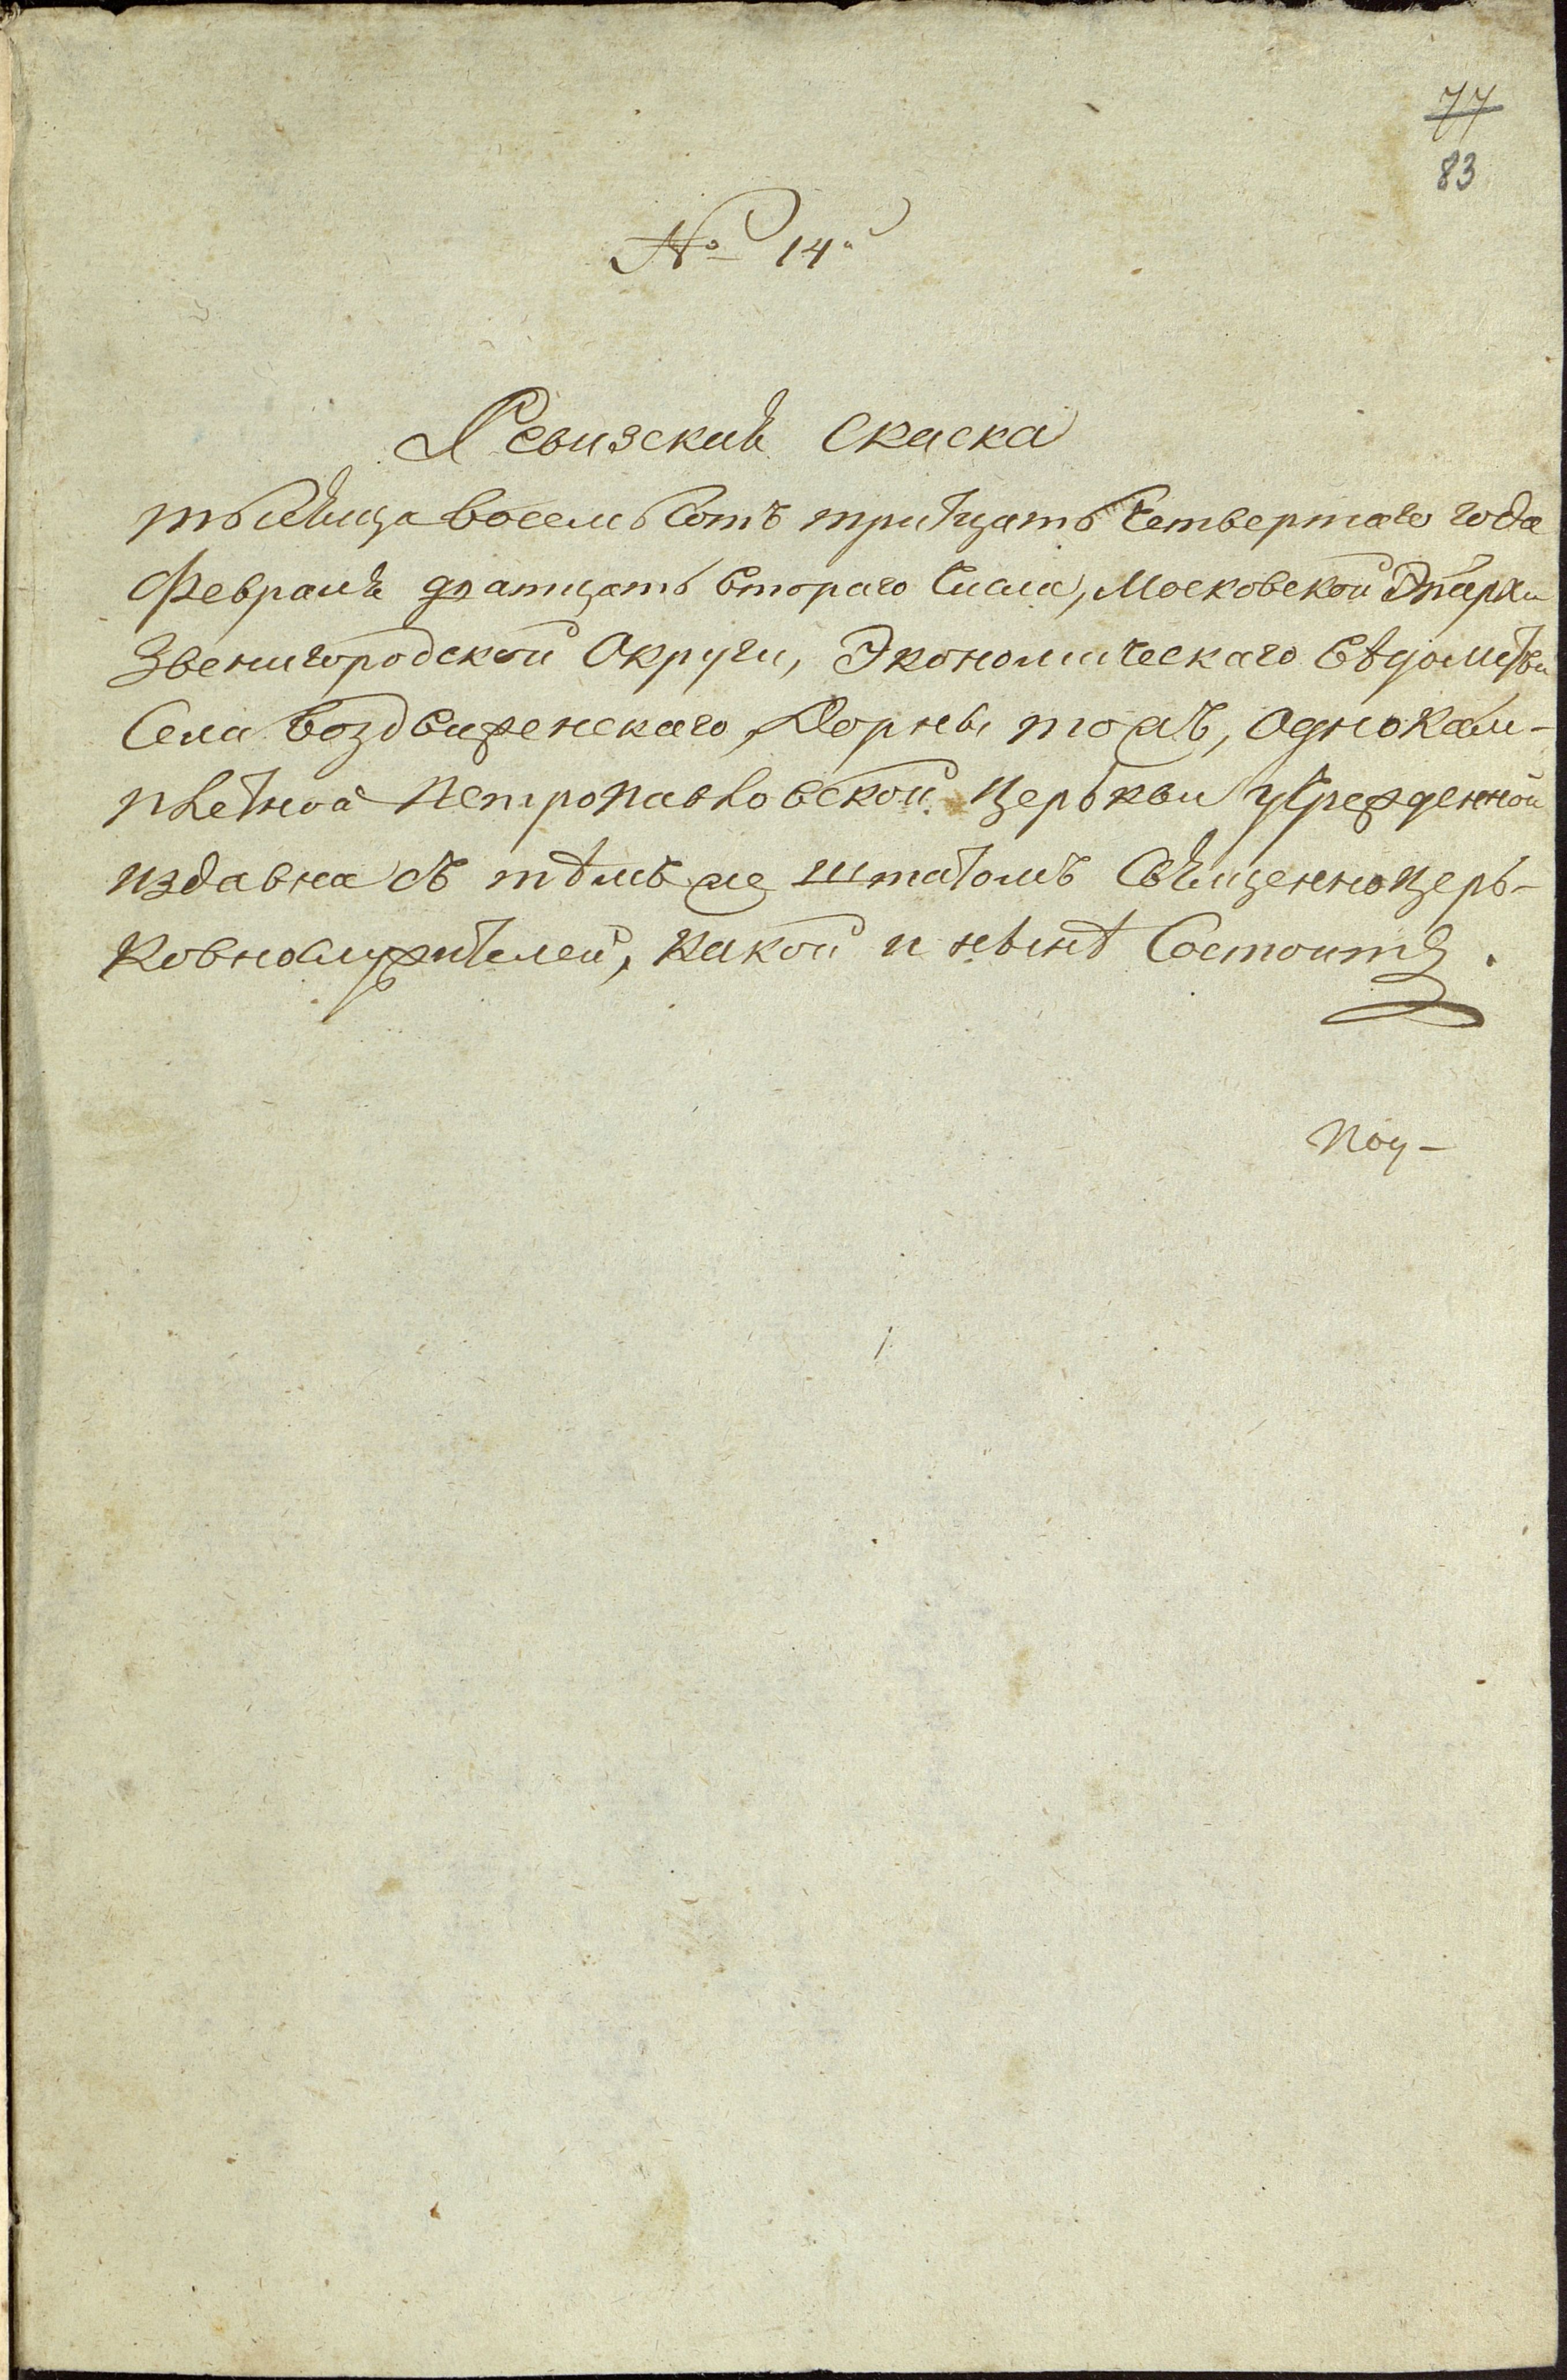 77
83
№ 14й
Ревизская скаска
тысяща восемь сотъ тритцать четвертаго года
Февраля дватцать втораго числа, Московской Эпархи
Звенигородской Округи, Экономическаго вѣдомства
Села Воздвиженскаго, Дорны тожъ, однокам-
плетной Петропавловской церькви учрежденной
издавна съ тѣмъ же штатомъ Священноцерь-
ковнослужителей, какой и нынѣ Состоитъ.